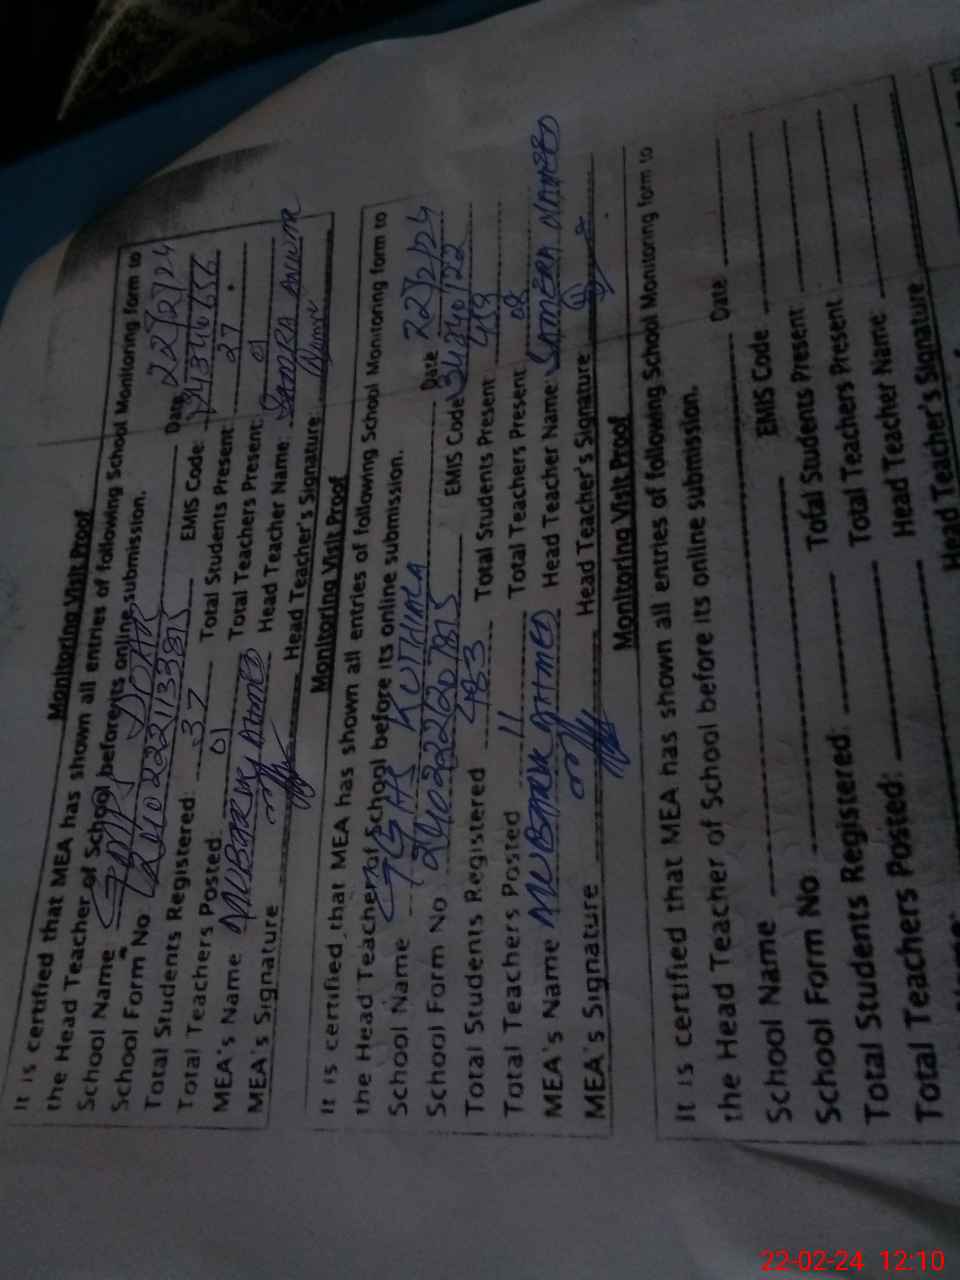 Monitoring Visit Proof
It is certified that MEA has shown all entries of following School Monitoring form to
the Head Teacher of School before its online submission.
School Name Date 22/2/24
School Form No EMIS Code:
Total Students Registered: 37 Total Students Present: 27
Total Teachers Posted: 01 Total Teachers Present: 01
MEA's Name MUBARK AHMED Head Teacher Name:
MEA's Signature Head Teacher's Signature:
Monitoring Visit Proof
It is certified that MEA has shown all entries of following School Monitoring form to
the Head Teacher of School before its online submission.
School Name GGHS Date 22/2/24
School Form No EMIS Code
Total Students Registered 483 Total Students Present
Total Teachers Posted 11 Total Teachers Present 08
MEA's Name MUBARK AHMED Head Teacher Name:
MEA's Signature Head Teacher's Signature
Monitoring Visit Proof
It is certified that MEA has shown all entries of following School Monitoring form to
the Head Teacher of School before its online submission.
School Name Date
School Form No EMIS Code
Total Students Registered: Total Students Present
Total Teachers Posted: Total Teachers Present
Head Teacher Name:
Head Teacher's Signature
22-02-24 12:10